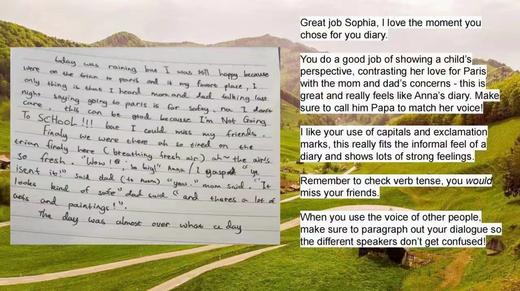 today was raining but I was still happy because
were on the trian to paris and it my faviore place, I..
only thing is that I heard mom and dad talking last
night saying going to paris is for safty, no I don't
care, this can be good because I'm Not Going
To SCHOOL!!! but I could miss my friends.
Finaly we were there ah so tired on the
trian finaly here (breathing fresh air) ah~ the air's
so fresh. "Wow! so big!" Anna / I gasped "ya
isent it" said dad (to mom) "you.." mom said. "It
looks kind of safe" dad said "and theres a lot of
arts and paintings!".
The day was almost over what a day
Great job Sophia, I love the moment you
chose for you diary.
You do a good job of showing a child's
perspective, contrasting her love for Paris
with the mom and dad's concerns - this is
great and really feels like Anna's diary. Make
sure to call him Papa to match her voice!
I like your use of capitals and exclamation
marks, this really fits the informal feel of a
diary and shows lots of strong feelings.
Remember to check verb tense, you would
miss your friends.
When you use the voice of other people,
make sure to paragraph out your dialogue so
the different speakers don't get confused!